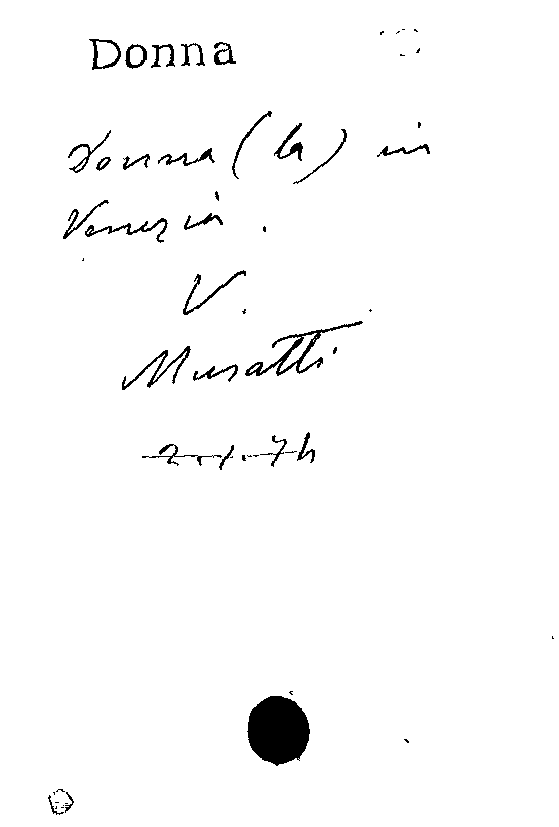 Donna
Donna (la) in
Venezia.
V.
Musatti
2.1.74